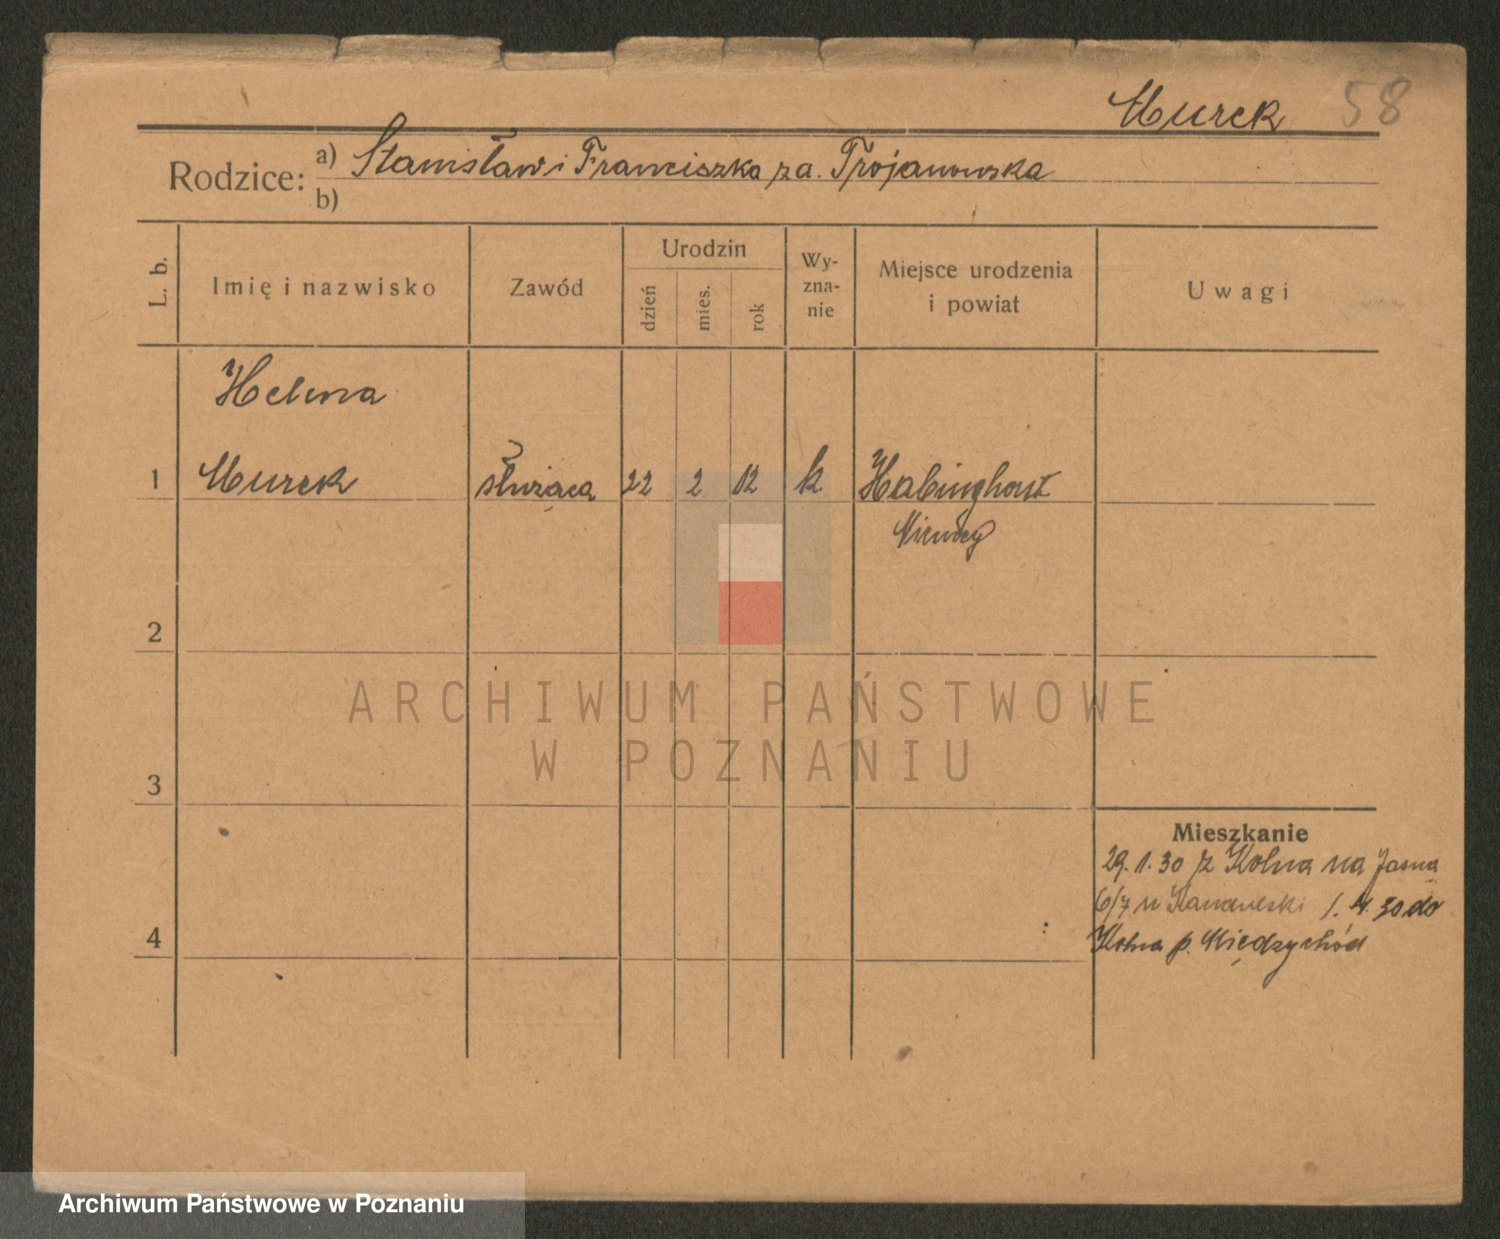 Murek 58
Rodzice: a) Stanisław i Franciszka za. Trojanowska
b)
L. b.
Imię i nazwisko
Zawód
Urodzin
dzień
mies.
rok
Wy-
zna-
nie
Miejsce urodzenia
i powiat
Uwagi
Helena
1 Murek służąca 22 2 12 k. Habinghorst
Niemcy
2
ARCHIWUM PAŃSTWOWE
W POZNANIU
3
Mieszkanie
29.1.30 z Kolna na Jasna
6/7 u 1.4.30 do
4 Kolna p. Międzychód
Archiwum Państwowe w Poznaniu